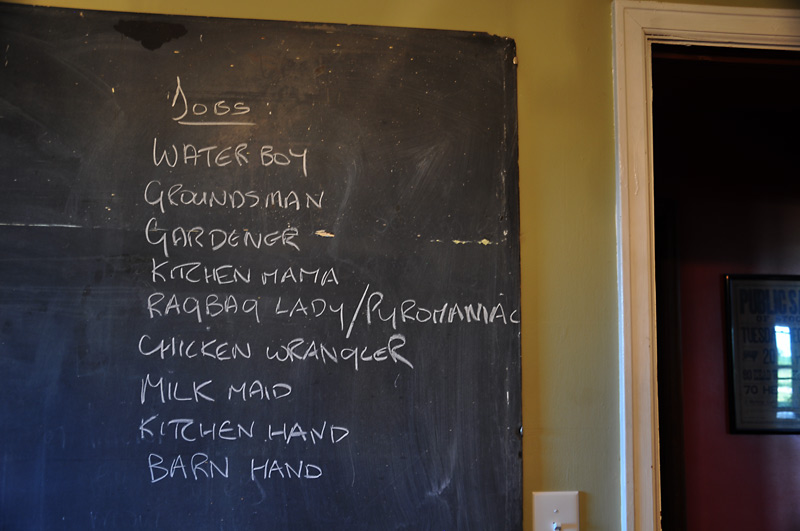 JOBS:
WATER BOY
GROUNDSMAN
GARDENER
KITCHEN MAMA
RAGBAG LADY/PYROMANIAC
CHICKEN WRANGLER
MILK MAID
KITCHEN HAND
BARN HAND
PUBLIC S
TUESD
70 H